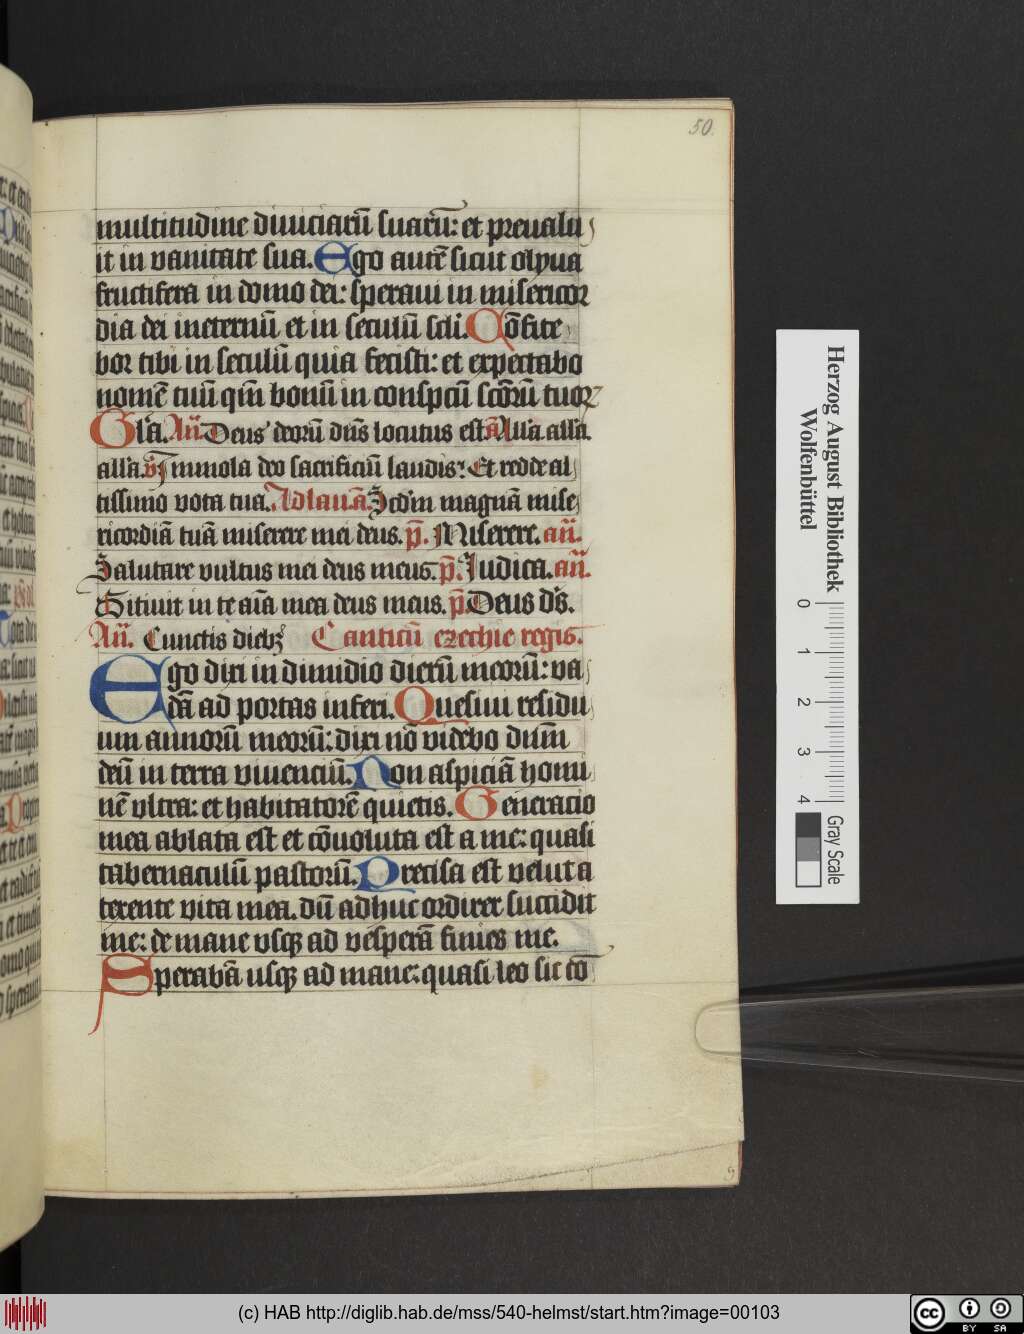 50.
multitudine diuiciarū suarū: et preualu
it in vanitate sua. Ego autē sicut olyua
fructifera in domo dei: speraui in misericor
dia dei ineternū et in seculū scli. Cōfite
bor tibi in seculū quia fecisti: et expectabo
nomē tuū qm̄ bonū in conspcū scōrū tuoꝝ
Glā. Añ. Deus deorū dn̄s locutus est ā Alla. alla.
alla. v̄ Immola deo sacrificiū laudis: Et redde al
tissimo vota tua. Ad lau. ā. Scdm̄ magnā mise
ricordiā tuā miserere mei deus. p̄. Miserere. añ.
Salutare vultus mei deus meus. p̄. Judica. añ.
Sitiuit in te aīa mea deus meus. p̄. Deus ds̄.
Añ. Cunctis diebꝫ Canticū ezechie regis.
Ego dixi in dimidio dierū meorū: va
dā ad portas inferi. Quesiui residu
um annorū meorū: dixi nō videbo dūm
deū in terra viuenciū. Non aspiciā homi
nē vltra: et habitatorē quietis. Generacio
mea ablata est et cōuoluta est a me: quasi
tabernaculū pastorū. Precisa est velut a
texente vita mea. dū adhuc ordirer succidit
me: de mane vsqꝫ ad vesperā finies me.
Sperabā usqꝫ ad mane: quasi leo sic cō
9
Herzog August Bibliothek
Wolfenbüttel
0 1 2 3 4
Gray Scale
(c) HAB http://diglib.hab.de/mss/540-helmst/start.htm?image=00103
cc BY SA